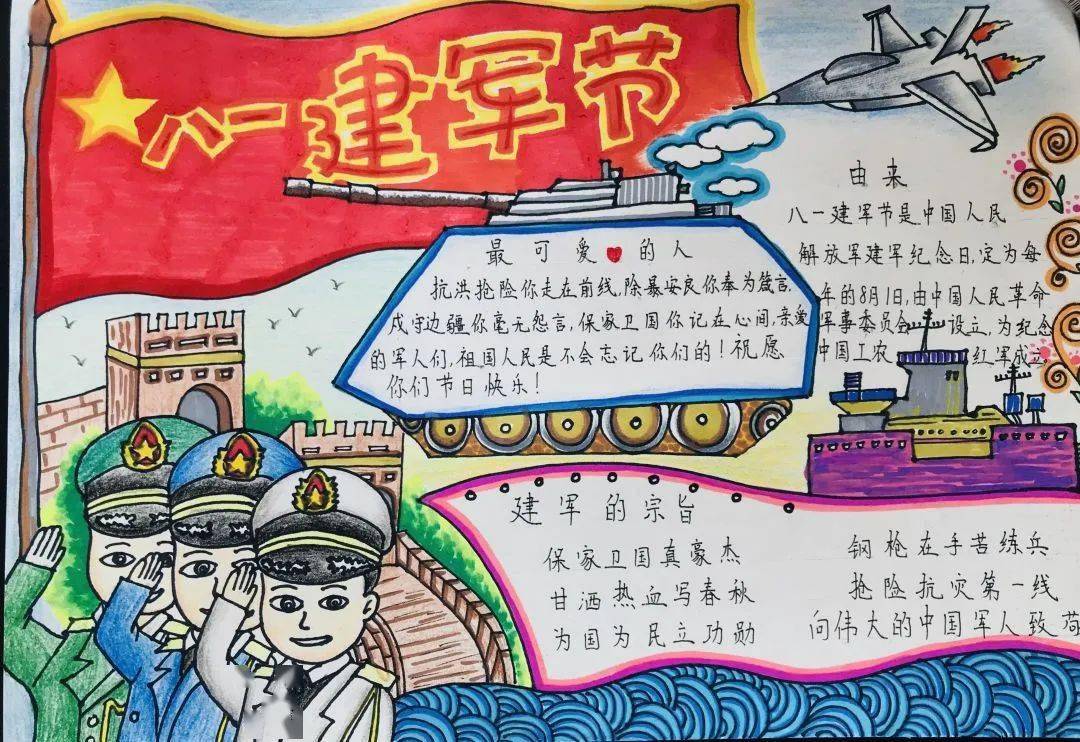 八一建军节
最可爱的人
抗洪抢险你走在前线,除暴安良你奉为箴言,
戍守边疆你毫无怨言,保家卫国你记在心间,亲爱
的军人们,祖国人民是不会忘记你们的!祝愿
你们节日快乐!
由来
八一建军节是中国人民
解放军建军纪念日,定为每
年的8月1日,由中国人民革命
军事委员会设立,为纪念
中国工农红军成立。
建军的宗旨
保家卫国真豪杰
甘洒热血写春秋
为国为民立功勋
钢枪在手苦练兵
抢险抗灾第一线
向伟大的中国军人致荷